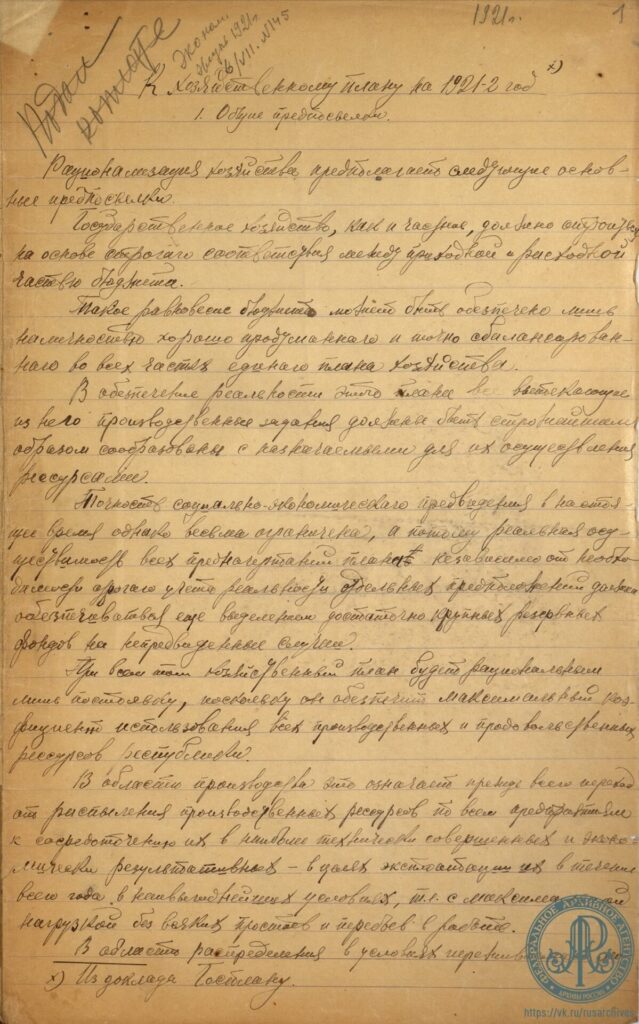 1921г.
1
Эконом.
жизнь 1921г.
26/VII. №145
К хозяйственному плану на 1921-2 год x)
1. Общие предпосылки.
Рационализация хозяйства предполагает следующие основ-
ные предпосылки.
Государственное хозяйство, как и частное, должно строиться
на основе строгого соответствия между приходной и расходной
частью бюджета.
Такое равновесие бюджета может быть обеспечено лишь
наличностью хорошо продуманного и точно сбалансирован-
ного во всех частях единого плана хозяйства.
В обеспечение реальности этого плана все вытекающие
из него производственные задания должны быть строжайшим
образом сообразованы с назначаемыми для их осуществления
ресурсами.
Точность социально-экономического предвидения в настоя-
щее время однако весьма ограничена, а потому реальная осу-
ществимость всех предначертаний плана независимо от необхо-
димости строгого учета реальности отдельных предположений должна
обеспечиваться еще выделением достаточно крупных резервных
фондов на непредвиденные случаи.
При всем том хозяйственный план будет рациональным
лишь постольку, поскольку он обеспечит максимальный коэф-
фициент использования всех производственных и продовольственных
рессурсов республики.
В области производства это означает прежде всего переход
от распыления производственных ресурсов по всем предприятиям
к сосредоточению их в наиболее технически совершенных и эконо-
мически результативных – в целях эксплоатации их в течение
всего года, в наивыгоднейших условиях, т.е. с
нагрузкой без всяких простоев и перебоев в работе.
В области распределения в условиях
x) Из доклада Госплану.
ФЕДЕРАЛЬНОЕ АРХИВНОЕ АГЕНТСТВО
АРХИВЫ РОССИИ
https://vk.ru/rusarchives